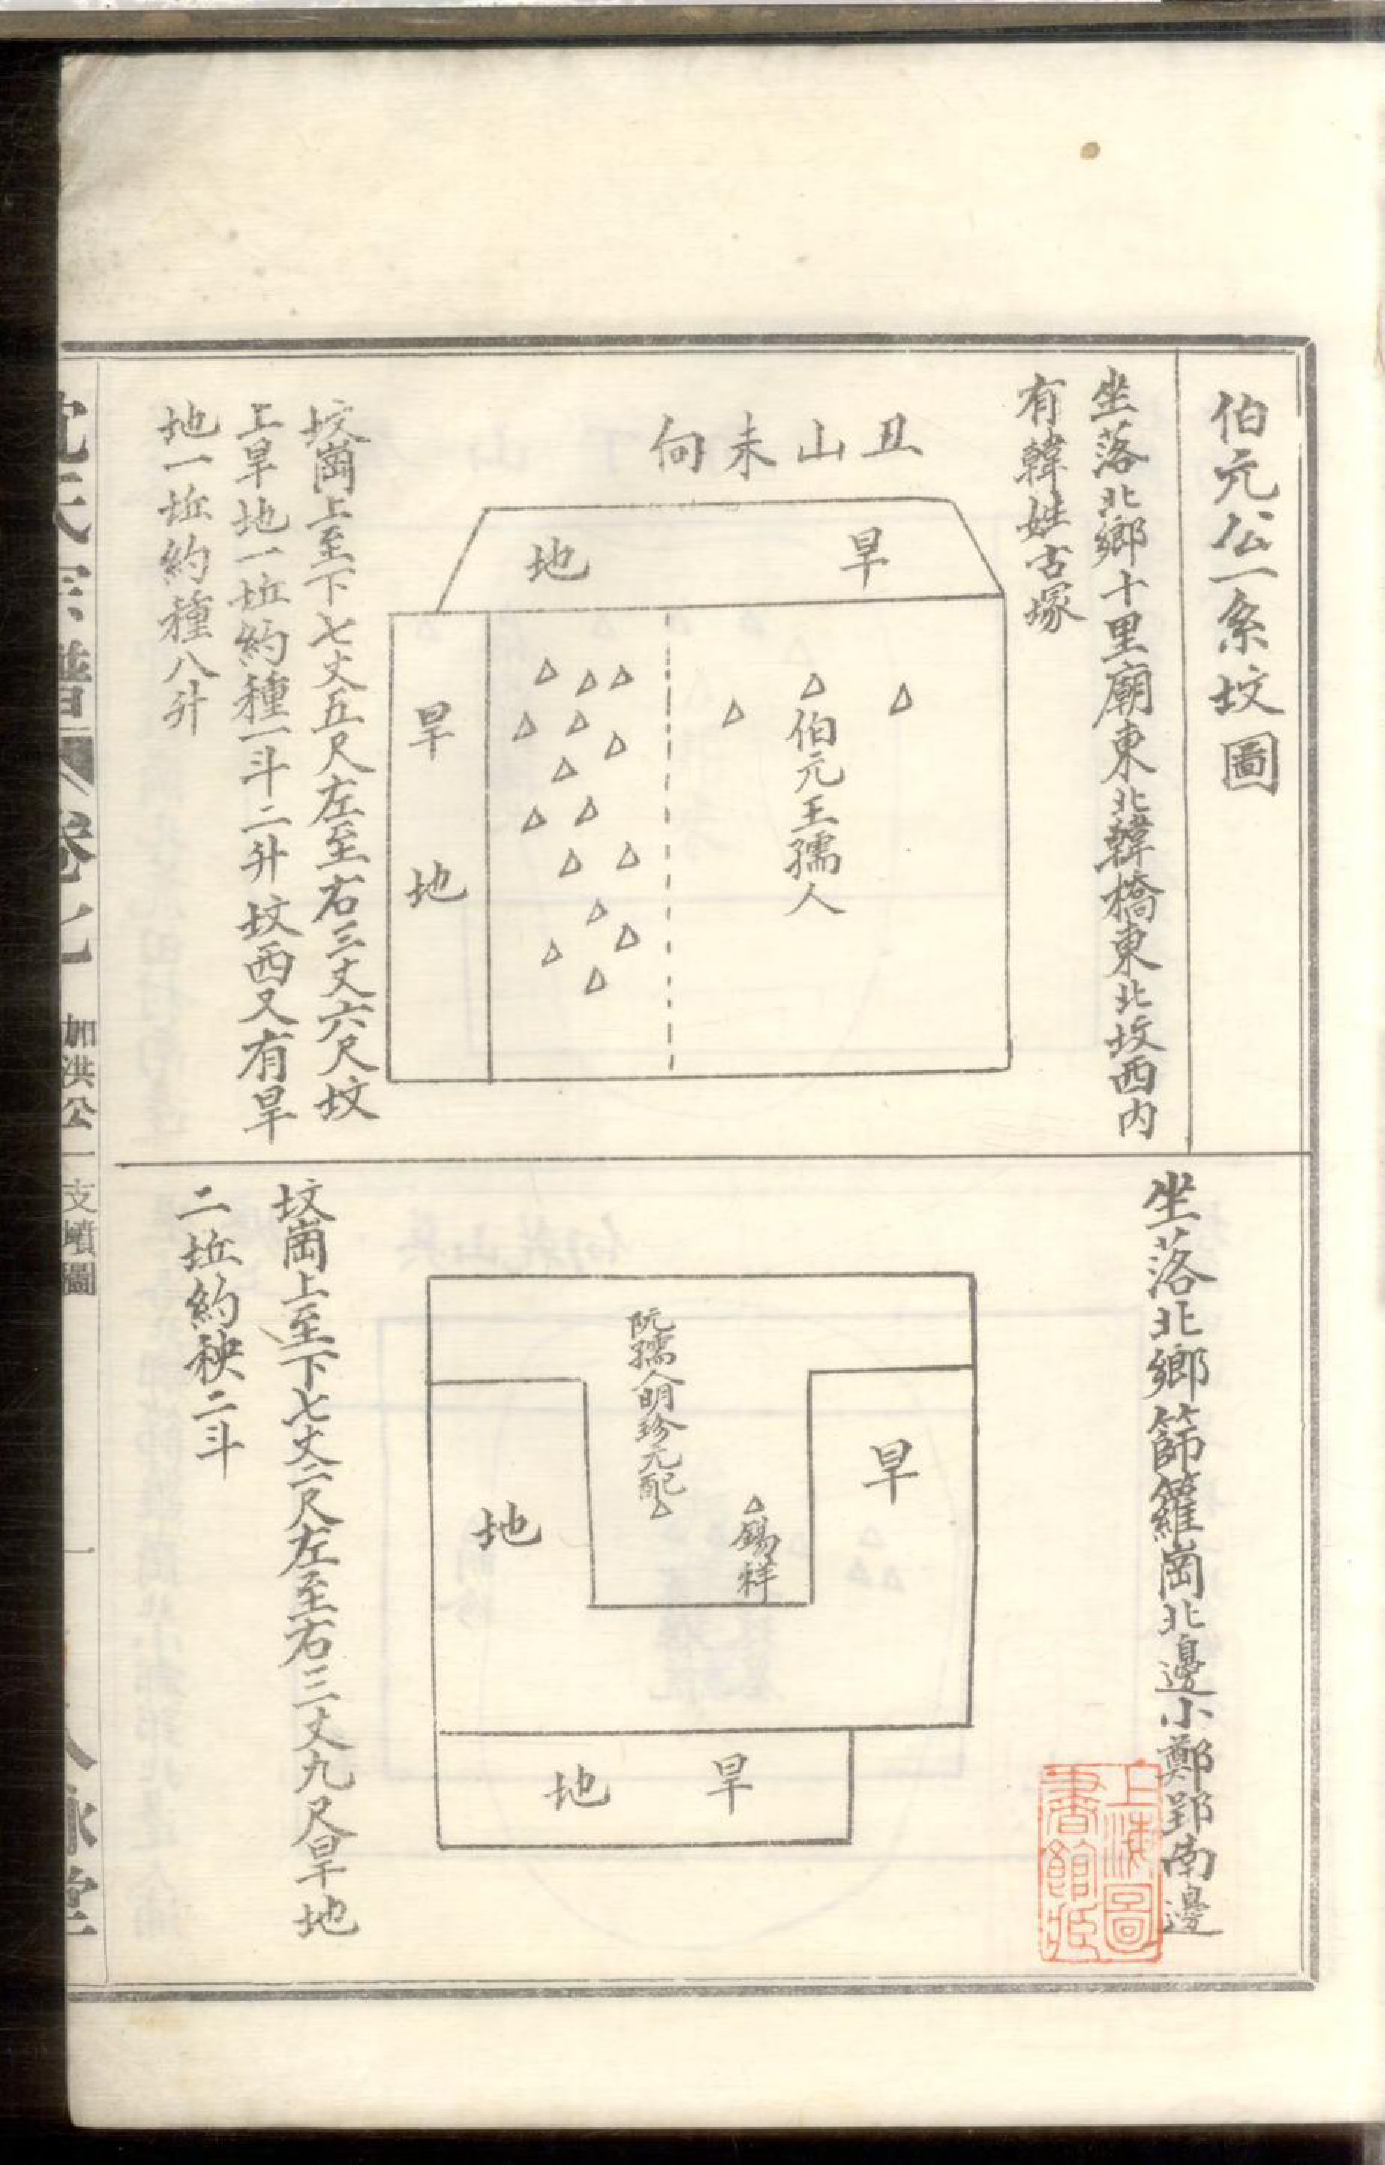 伯元公一系坟圖
坐落北鄉十里廟東北韓橋東北坟西内
有韓姓古塚
丑山未向
旱地
伯元王孺人
旱地
坟崗上至下七丈五尺左至右三丈六尺坟
上旱地一坵約種一斗二升坟西又有旱
地一坵約種八升
坐落北鄉篩籮崗北邊小鄭郢南邊
阮孺人明珍元配
錫祥
旱地
旱地
坟崗上至下七丈六尺左至右三丈九尺旱地
二坵約秧二斗
沈氏宗譜
卷七
加洪公一支墳圖
一
八詠堂
上海圖書館藏